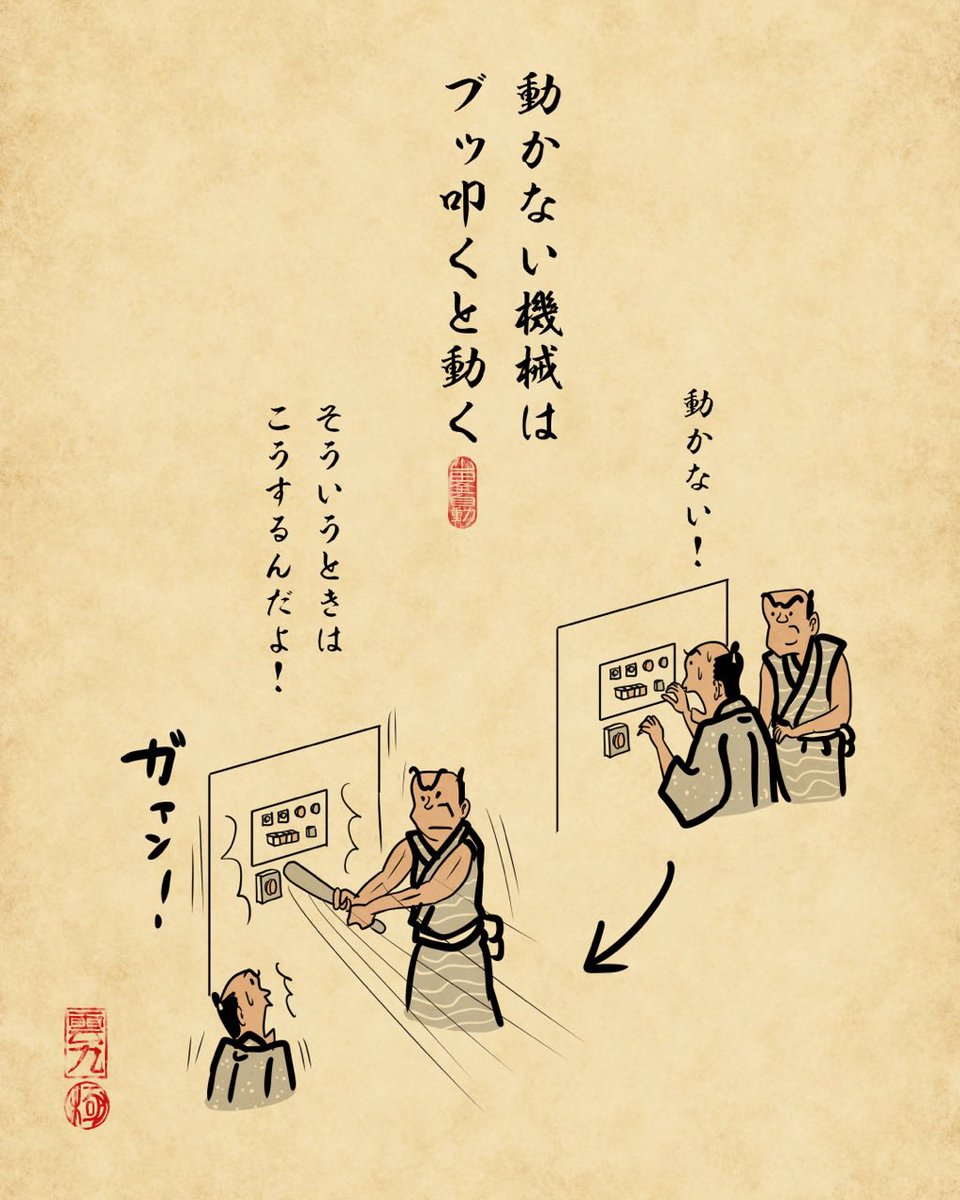 動かない機械は
ブッ叩くと動く
動かない！
そういうときは
こうするんだよ！
ガイン！